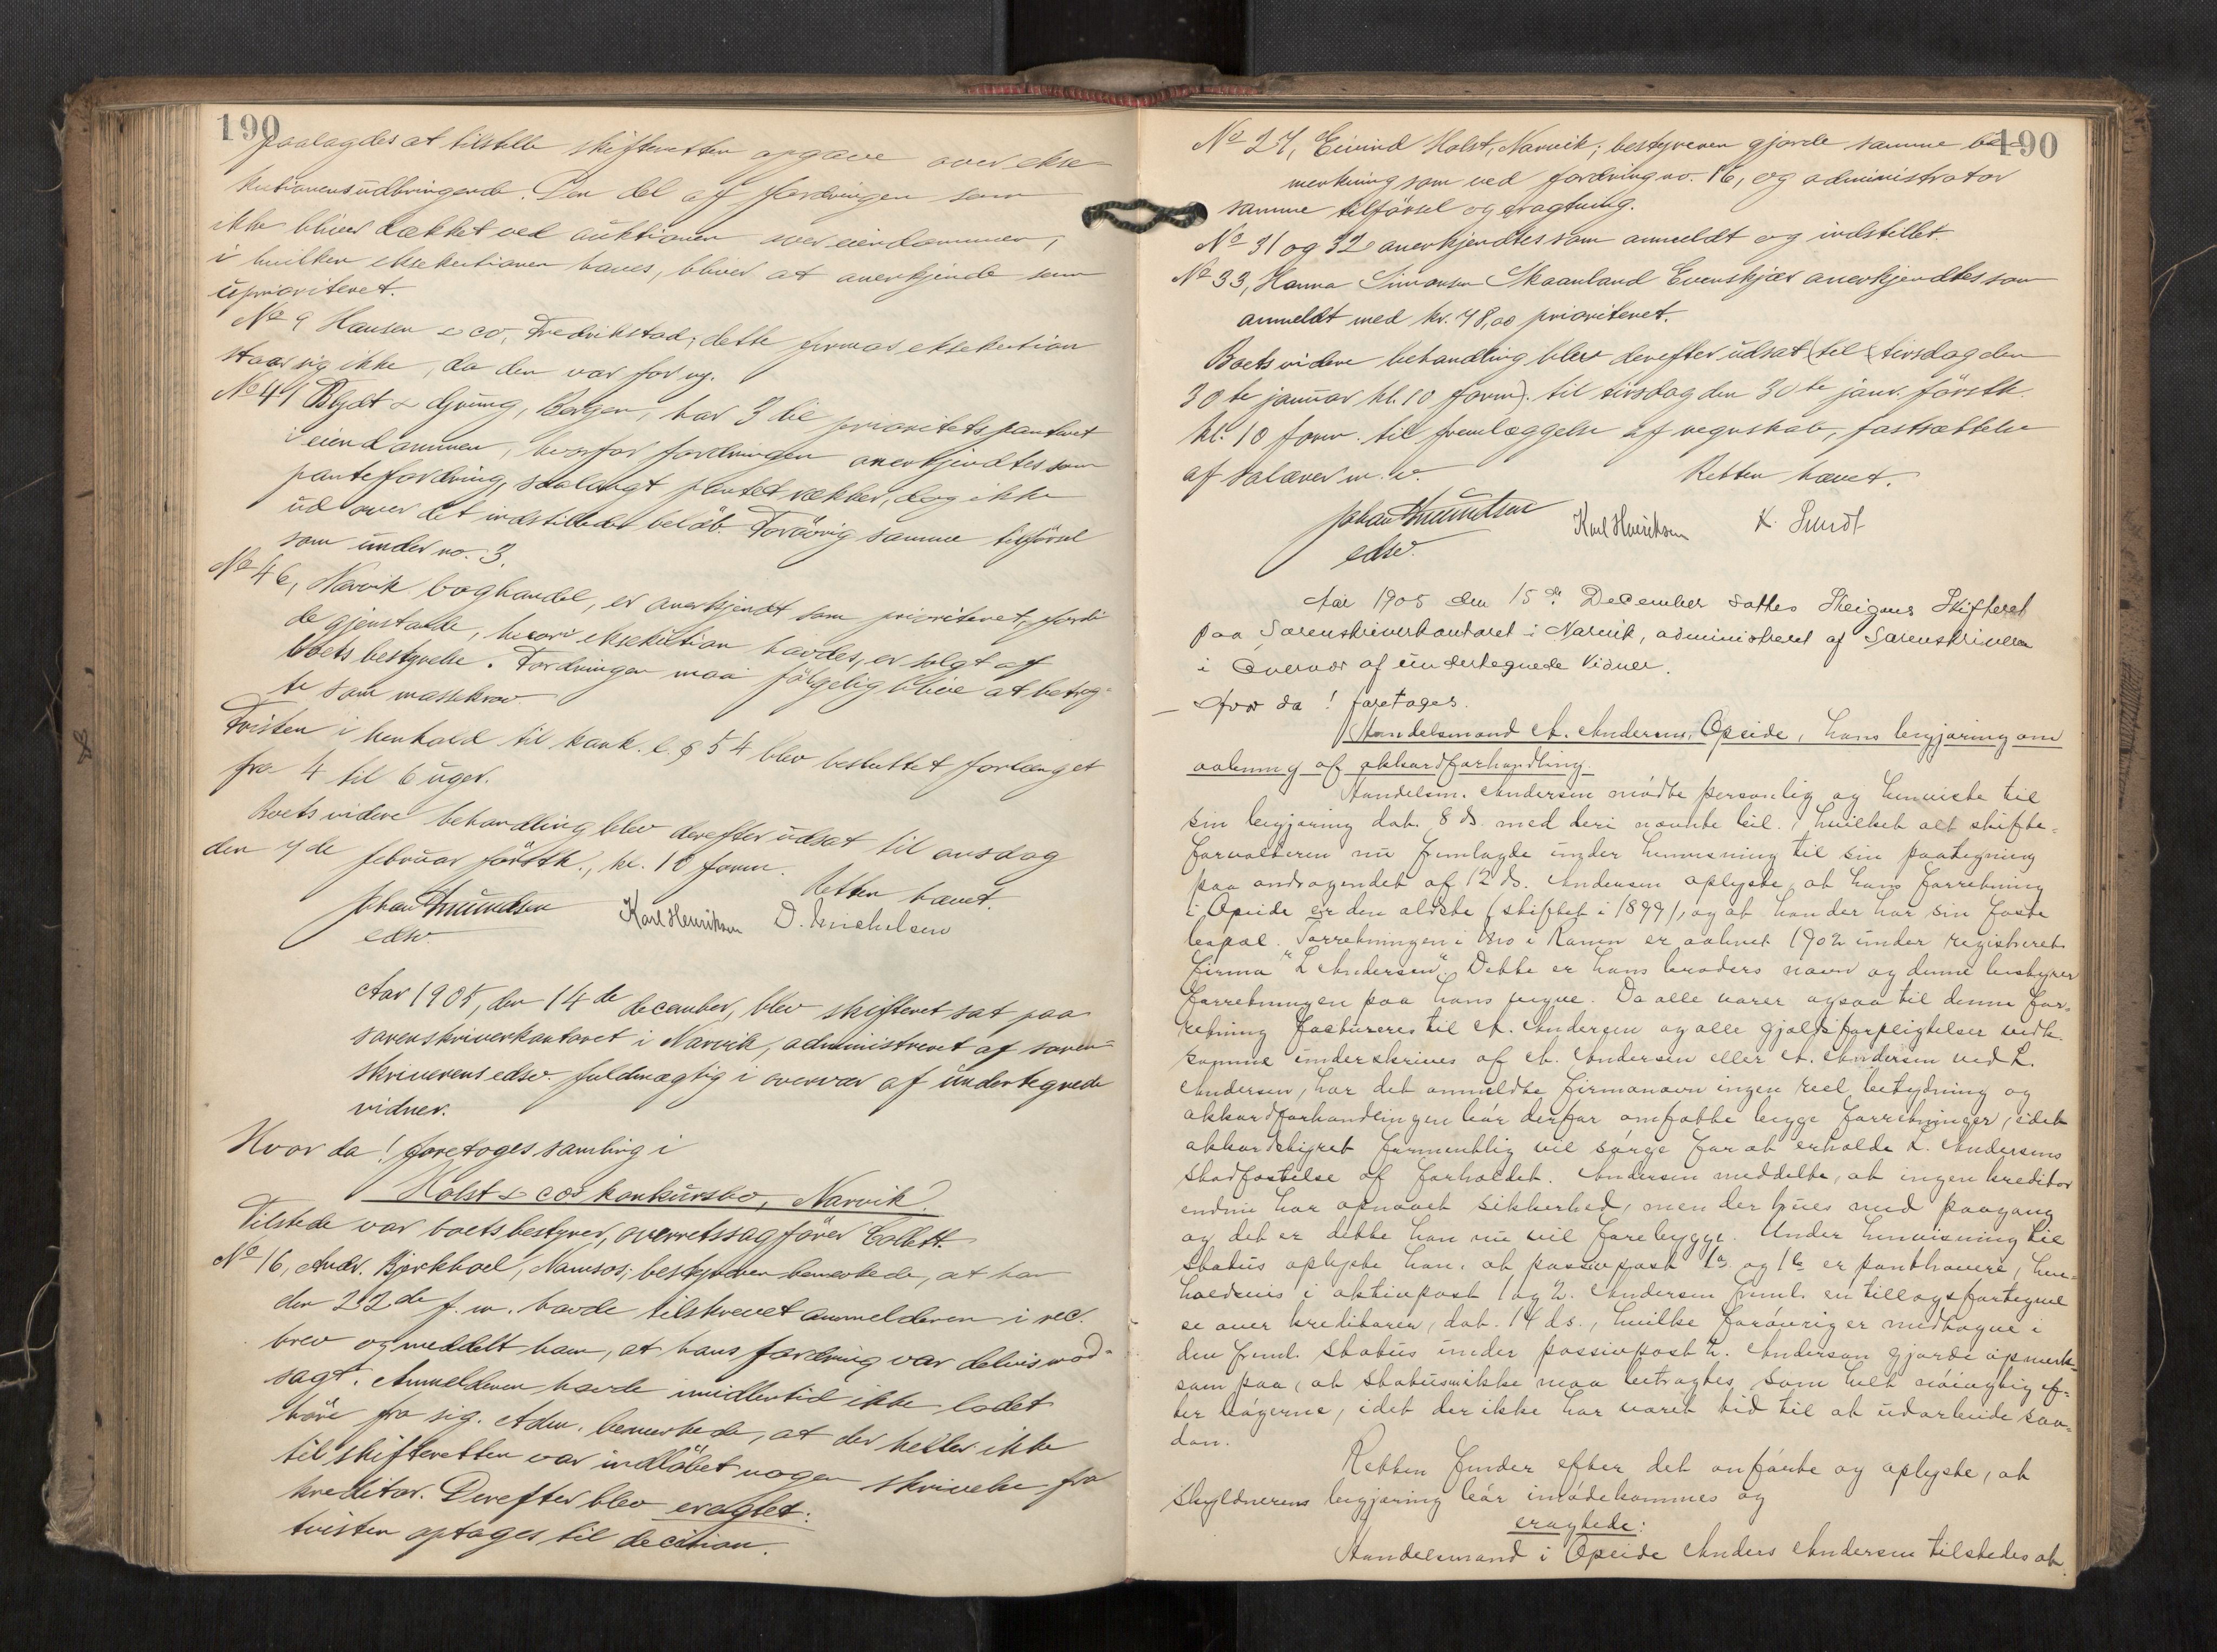 190
paalagdes at tilstille skifteretten opgave over ekse
kutionens udbringende. Den del af fordringen som
ikke bliver dækket ved auktionen over eiendommen,
i hvilken eksekutionen haves, bliver at anerkjende som
uprioriteret.
No 9 Hansen & co, Fredrikstad; dette firmas eksekution
staar sig ikke, da den var for ny.
No 41 & Gjving, Bergen, har 3die prioritets panteret
i eiendommen, hvorfor fordringen anerkjendtes som
pantefordring, saalangt pantet rækker, dog ikke
ud over det indstillede beløb. Forøvrig samme tilførsel
som under no. 3.
No 46, Narvik boghandel, er anerkjendt som prioriteret, fordi
de gjenstande, hvori eksekution havdes, er solgt af
boets bestyrelse. Fordringen maa følgelig blive at betrag-
te som massekrav.
Fristen i henhold til konk. l. § 54 blev besluttet forlænget
fra 4 til 6 uger.
Boets videre behandling blev derefter udsat til onsdag
den 7de februar førstk., kl. 10 form.
Retten hævet.
Johan Knudtsen Karl Henriksen D. Michelsen
edsv.
Aar 1905, den 14de december, blev skifteret sat paa
sorenskriverkontoret i Narvik, administreret af soren-
skriverens edsv. fuldmægtig i overvær af undertegnede
vidner.
Hvor da! foretoges samling i
Holst & cos konkursbo, Narvik.
Tilstede var boets bestyrer, overretssagfører Collett.
No 16, Andr. Bjørkhoel, Namsos; bestyreren bemerkede, at han
den 22de f. m. havde tilskrevet anmelderen i rec.
brev og meddelt ham, at hans fordring var delvis mod-
sagt. Anmelderen havde imidlertid ikke ladet
høre fra sig. Adm. bemerkede, at der heller ikke
til skifteretten var indløbet nogen skrivelse fra
kreditor. Derefter blev eragtet:
tvisten optages til decision.
190
No 27, Eivind Holst, Narvik; bestyreren gjorde samme be-
merkning som ved fordring no. 16, og administrator
samme tilførsel og eragtning.
No 31 og 32 anerkjendtes som anmeldt og indstillet.
No 33, Hanna Simonsen Skaanland Evenskjær anerkjendtes som
anmeldt med kr. 48,00 prioriteret.
Boets videre behandling blev derefter udsat (til (tirsdag den
30te januar kl. 10 form). til tirsdag den 30te janr. førstk.
kl. 10 form. til fremlæggelse af regnskab, fastsættelse
af salærer m. v. Retten hævet.
Johan Knudtsen Karl Henriksen K. Lundt
edsv.
Aar 1905 den 15de December sattes Steigens Skifteret
paa Sorenskriverkontoret i Narvik, administreret af Sorenskriveren
i Overvær af undertegnede Vidner.
— Hvor da! foretages.
Handelsmand A. Andersen, Opeide, hans begjæring om
aabning af akkordforhandling.
Handelsm. Andersen mødte personlig og henviste til
sin begjæring dat. 8 ds. med deri nævnte bil., hvilket alt skifte-
forvalteren nu fremlagde under henvisning til sin paategning
paa andragendet af 12 ds. Andersen oplyste, at hans forretning
i Opeide er den ældste (stiftet i 1899), og at han der har sin faste
bopæl. Forretningen i Mo i Ranen er aabnet 1902 under registreret
firma "L Andersen". Dette er hans broders navn og denne bestyrer
forretningen paa hans vegne. Da alle varer ogsaa til denne for-
retning factureres til A. Andersen og alle gjældsforpligtelser vedk.
samme underskrives af A. Andersen eller A. Andersen ved L.
Andersen, har det anmeldte firmanavn ingen reel betydning og
akkordforhandlingen bør derfor omfatte begge forretninger, idet
akkordstyret formentlig vil sørge for at erholde L. Andersens
stadfæstelse af forholdet. Andersen meddelte, at ingen kreditor
endnu har opnaaet sikkerhed, men der trues med paagang
og det er dette han nu vil forebygge. Under henvisning til
status oplyste han, at passivpost 1a og 1b er panthavere, hen-
holdsvis i aktivpost 1 og 2. Andersen freml. en tillægsfortegnel
se over kreditorer, dat. 14 ds., hvilke forøvrig er medtagne i
den freml. status under passivpost 2. Andersen gjorde opmerk-
som paa, at statusen ikke maa betragtes som helt nøiagtig ef-
ter bøgerne, idet der ikke har været tid til at udarbeide saa-
dan.
Retten finder efter det anførte og oplyste, at
skyldnerens begjæring bør imødekommes og
eragtede:
Handelsmand i Opeide Anders Andersen tilstedes at